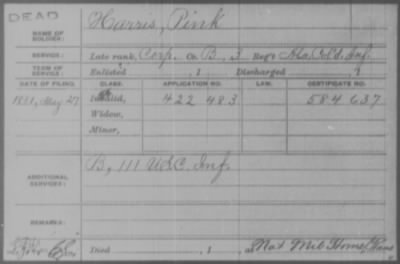 DEAD
NAME OF SOLDIER: Harris, Pink
SERVICE: Late rank, Corp. Co. B, 3 Reg't Ala Cold. Inf.
TERM OF SERVICE: Enlisted , 1 Discharged , 1
DATE OF FILING. CLASS. APPLICATION NO. LAW. CERTIFICATE NO.
1881, May 27 Invalid, 422 483 584 637
Widow,
Minor,
ADDITIONAL SERVICES: B, 111 U.S.C. Inf.
REMARKS:
Died , 1 , at Nat Mil Home/Kans